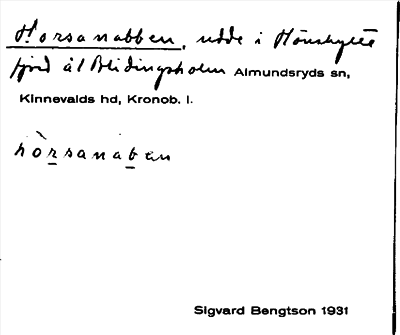 Horsanabben, udde i Hönshylte
fjord åt Blidingsholm Almundsryds sn,
Kinnevalds hd, Kronob. l.
hòrsanaban
Sigvard Bengtson 1931